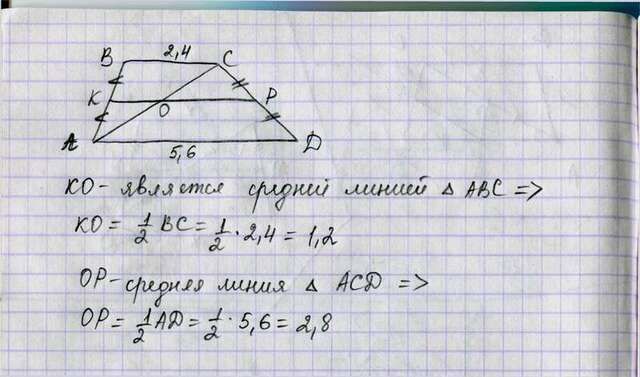 B 2,4 C
K O P
A 5,6 D
KO - является средней линией △ ABC =>
KO = 1/2 BC = 1/2 · 2,4 = 1,2
OP - средняя линия △ ACD =>
OP = 1/2 AD = 1/2 · 5,6 = 2,8